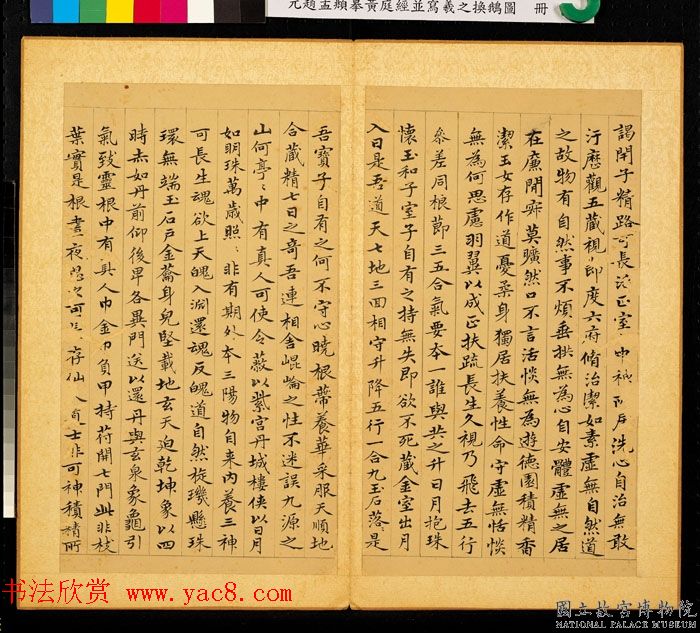 元趙孟頫摹黃庭經並寫羲之換鵝圖 冊
謁閉子精路可長活正室之中神所戶洗心自治無敢
汙歷觀五藏視節度六府脩治潔如素虛無自然道
之故物有自然事不煩垂拱無為心自安體虛無之居
在廉閒寂莫曠然口不言活惔無為遊德園積精香
潔玉女存作道憂柔身獨居扶養性命守虛無恬惔
無為何思慮羽翼以成正扶疏長生久視乃飛去五行
參差同根節三五合氣要本一誰與共之升日月抱珠
懷玉和子室子自有之持無失即欲不死藏金室出月
入日是吾道天七地三回相守升降五行一合九玉石落是
吾寶子自有之何不守心曉根蔕養華采服天順地
合藏精七日之奇吾連相舍崐崘之性不迷誤九源之
山何亭〻中有真人可使令蔽以紫宮丹城樓俠以日月
如明珠萬歲照〻非有期外本三陽物自来內養三神
可長生魂欲上天魄入淵還魂反魄道自然旋璣懸珠
環無端玉石戶金籥身皃堅載地玄天迫乾坤象以四
時赤如丹前仰後卑各異門送以還丹與玄泉象龜引
氣致靈根中有真人巾金巾負甲持苻開七門此非枝
葉實是根晝夜思之可 存仙 士非可神積精所
书法欣赏 www.yac8.com
國立故宮博物院
NATIONAL PALACE MUSEUM